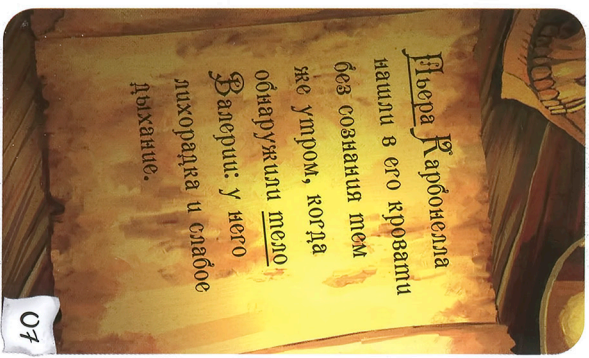 Пьера Карбонелла
нашли в его кровати
без сознания тем
же утром, когда
обнаружили тело
Валерии: у него
лихорадка и слабое
дыхание.
07